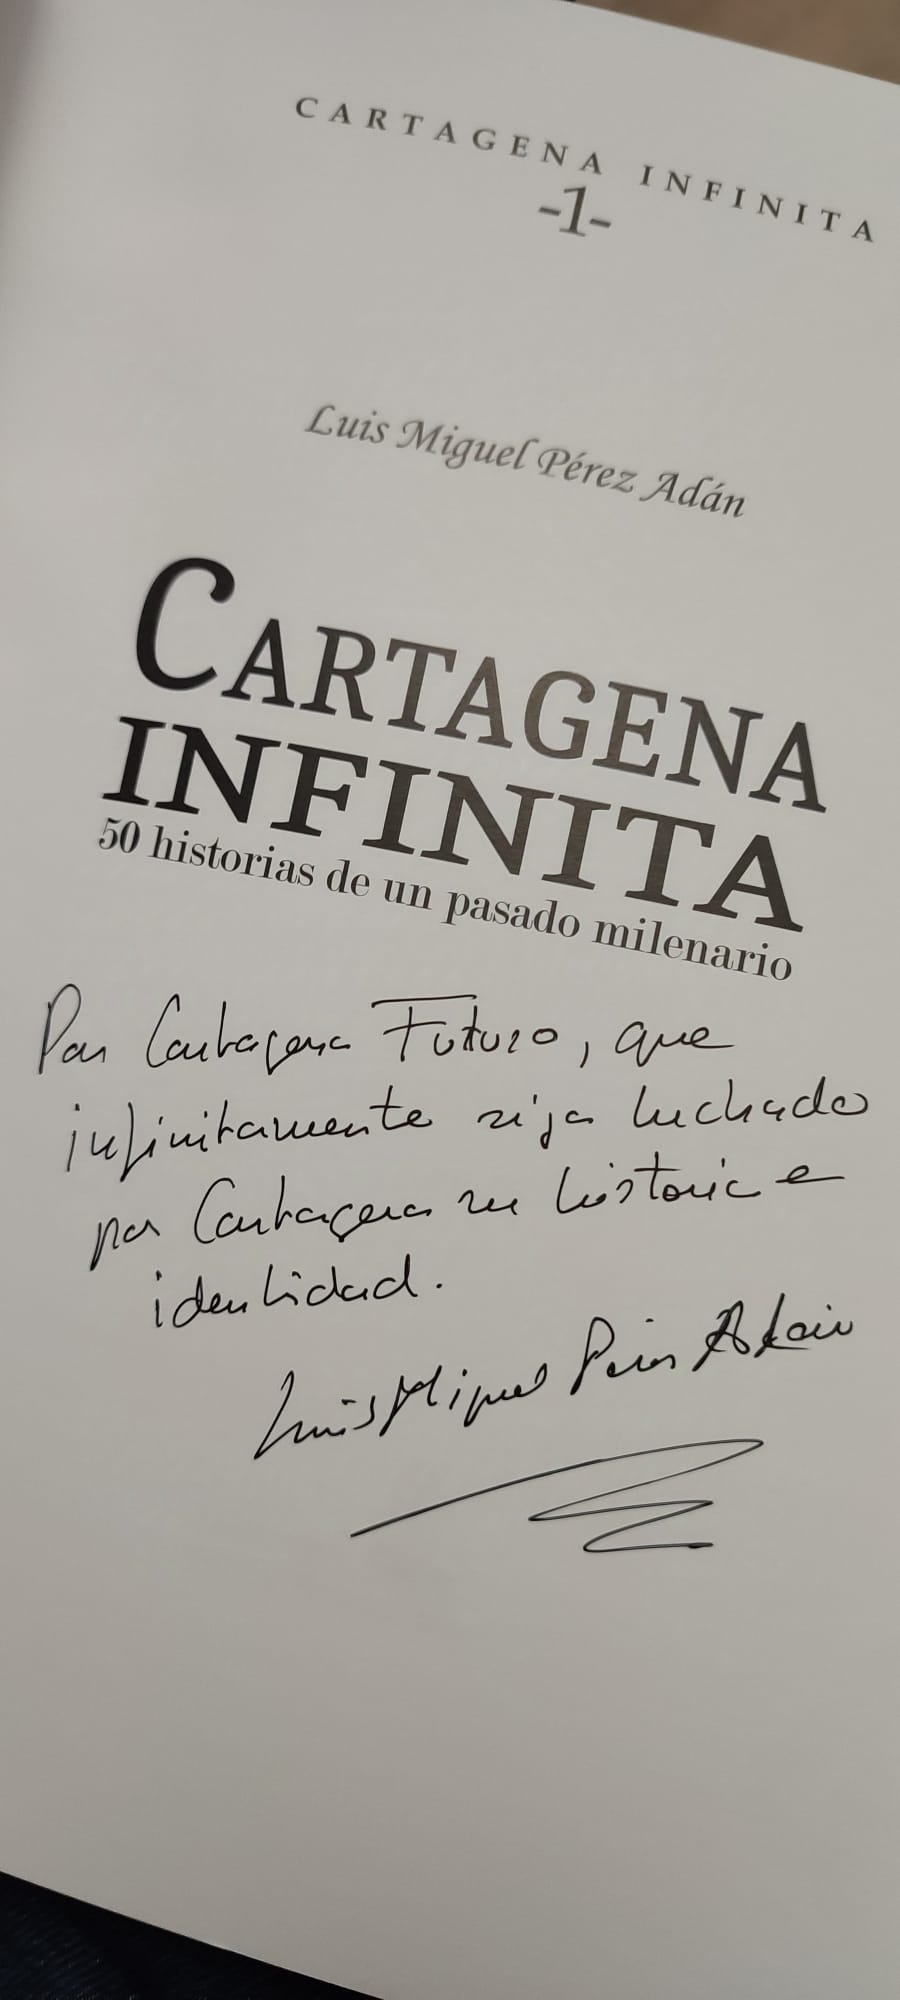 CARTAGENA INFINITA
-1-
Luis Miguel Pérez Adán
CARTAGENA
INFINITA
50 historias de un pasado milenario
Par Cartagena Futuro, que
infinitamente siga luchado
por Cartagena su historia e
identidad.
Luis Miguel Pérez Adán